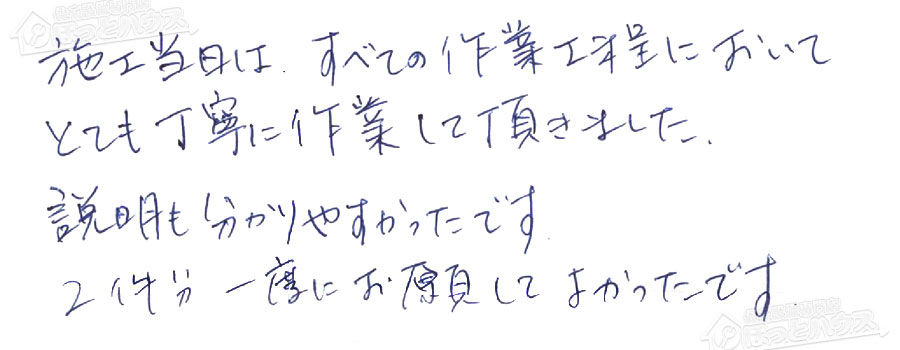 施工当日は、すべての作業工程において
とても丁寧に作業して頂きました.
説明も分かりやすかったです
2件分一度にお願してよかったです.
ほっとハウス
ほっとハウス